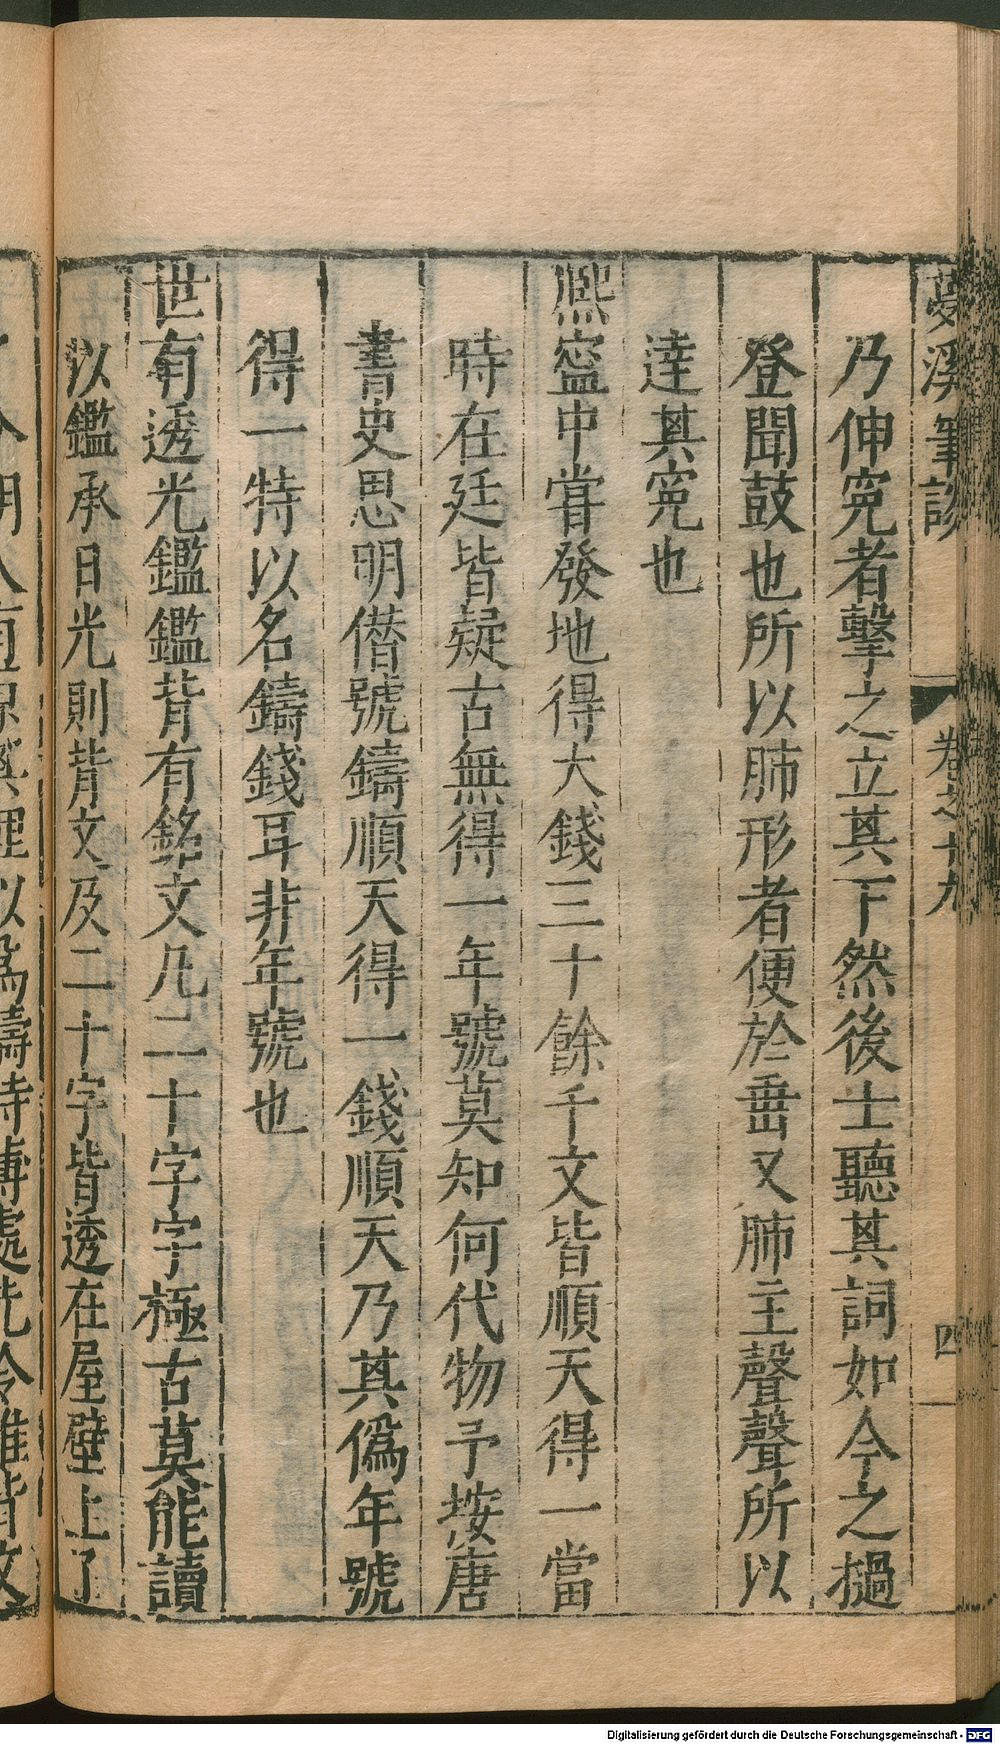 夢溪筆談 卷之十九 四
乃伸寃者擊之立其下然後士聽其詞如今之撾
登聞鼓也所以肺形者便於垂又肺主聲聲所以
達其寃也
熈寧中嘗發地得大錢三十餘千文皆順天得一當
時在廷皆疑古無得一年號莫知何代物予按唐
書史思明僭號鑄順天得一錢順天乃其僞年號
得一特以名鑄錢耳非年號也
世有透光鑑鑑背有銘文凡二十字字極古莫能讀
以鑑承日光則背文及二十字皆透在屋壁上了
人有原其理以爲鑄時薄處先冷唯背文
Digitalisierung gefördert durch die Deutsche Forschungsgemeinschaft - DFG